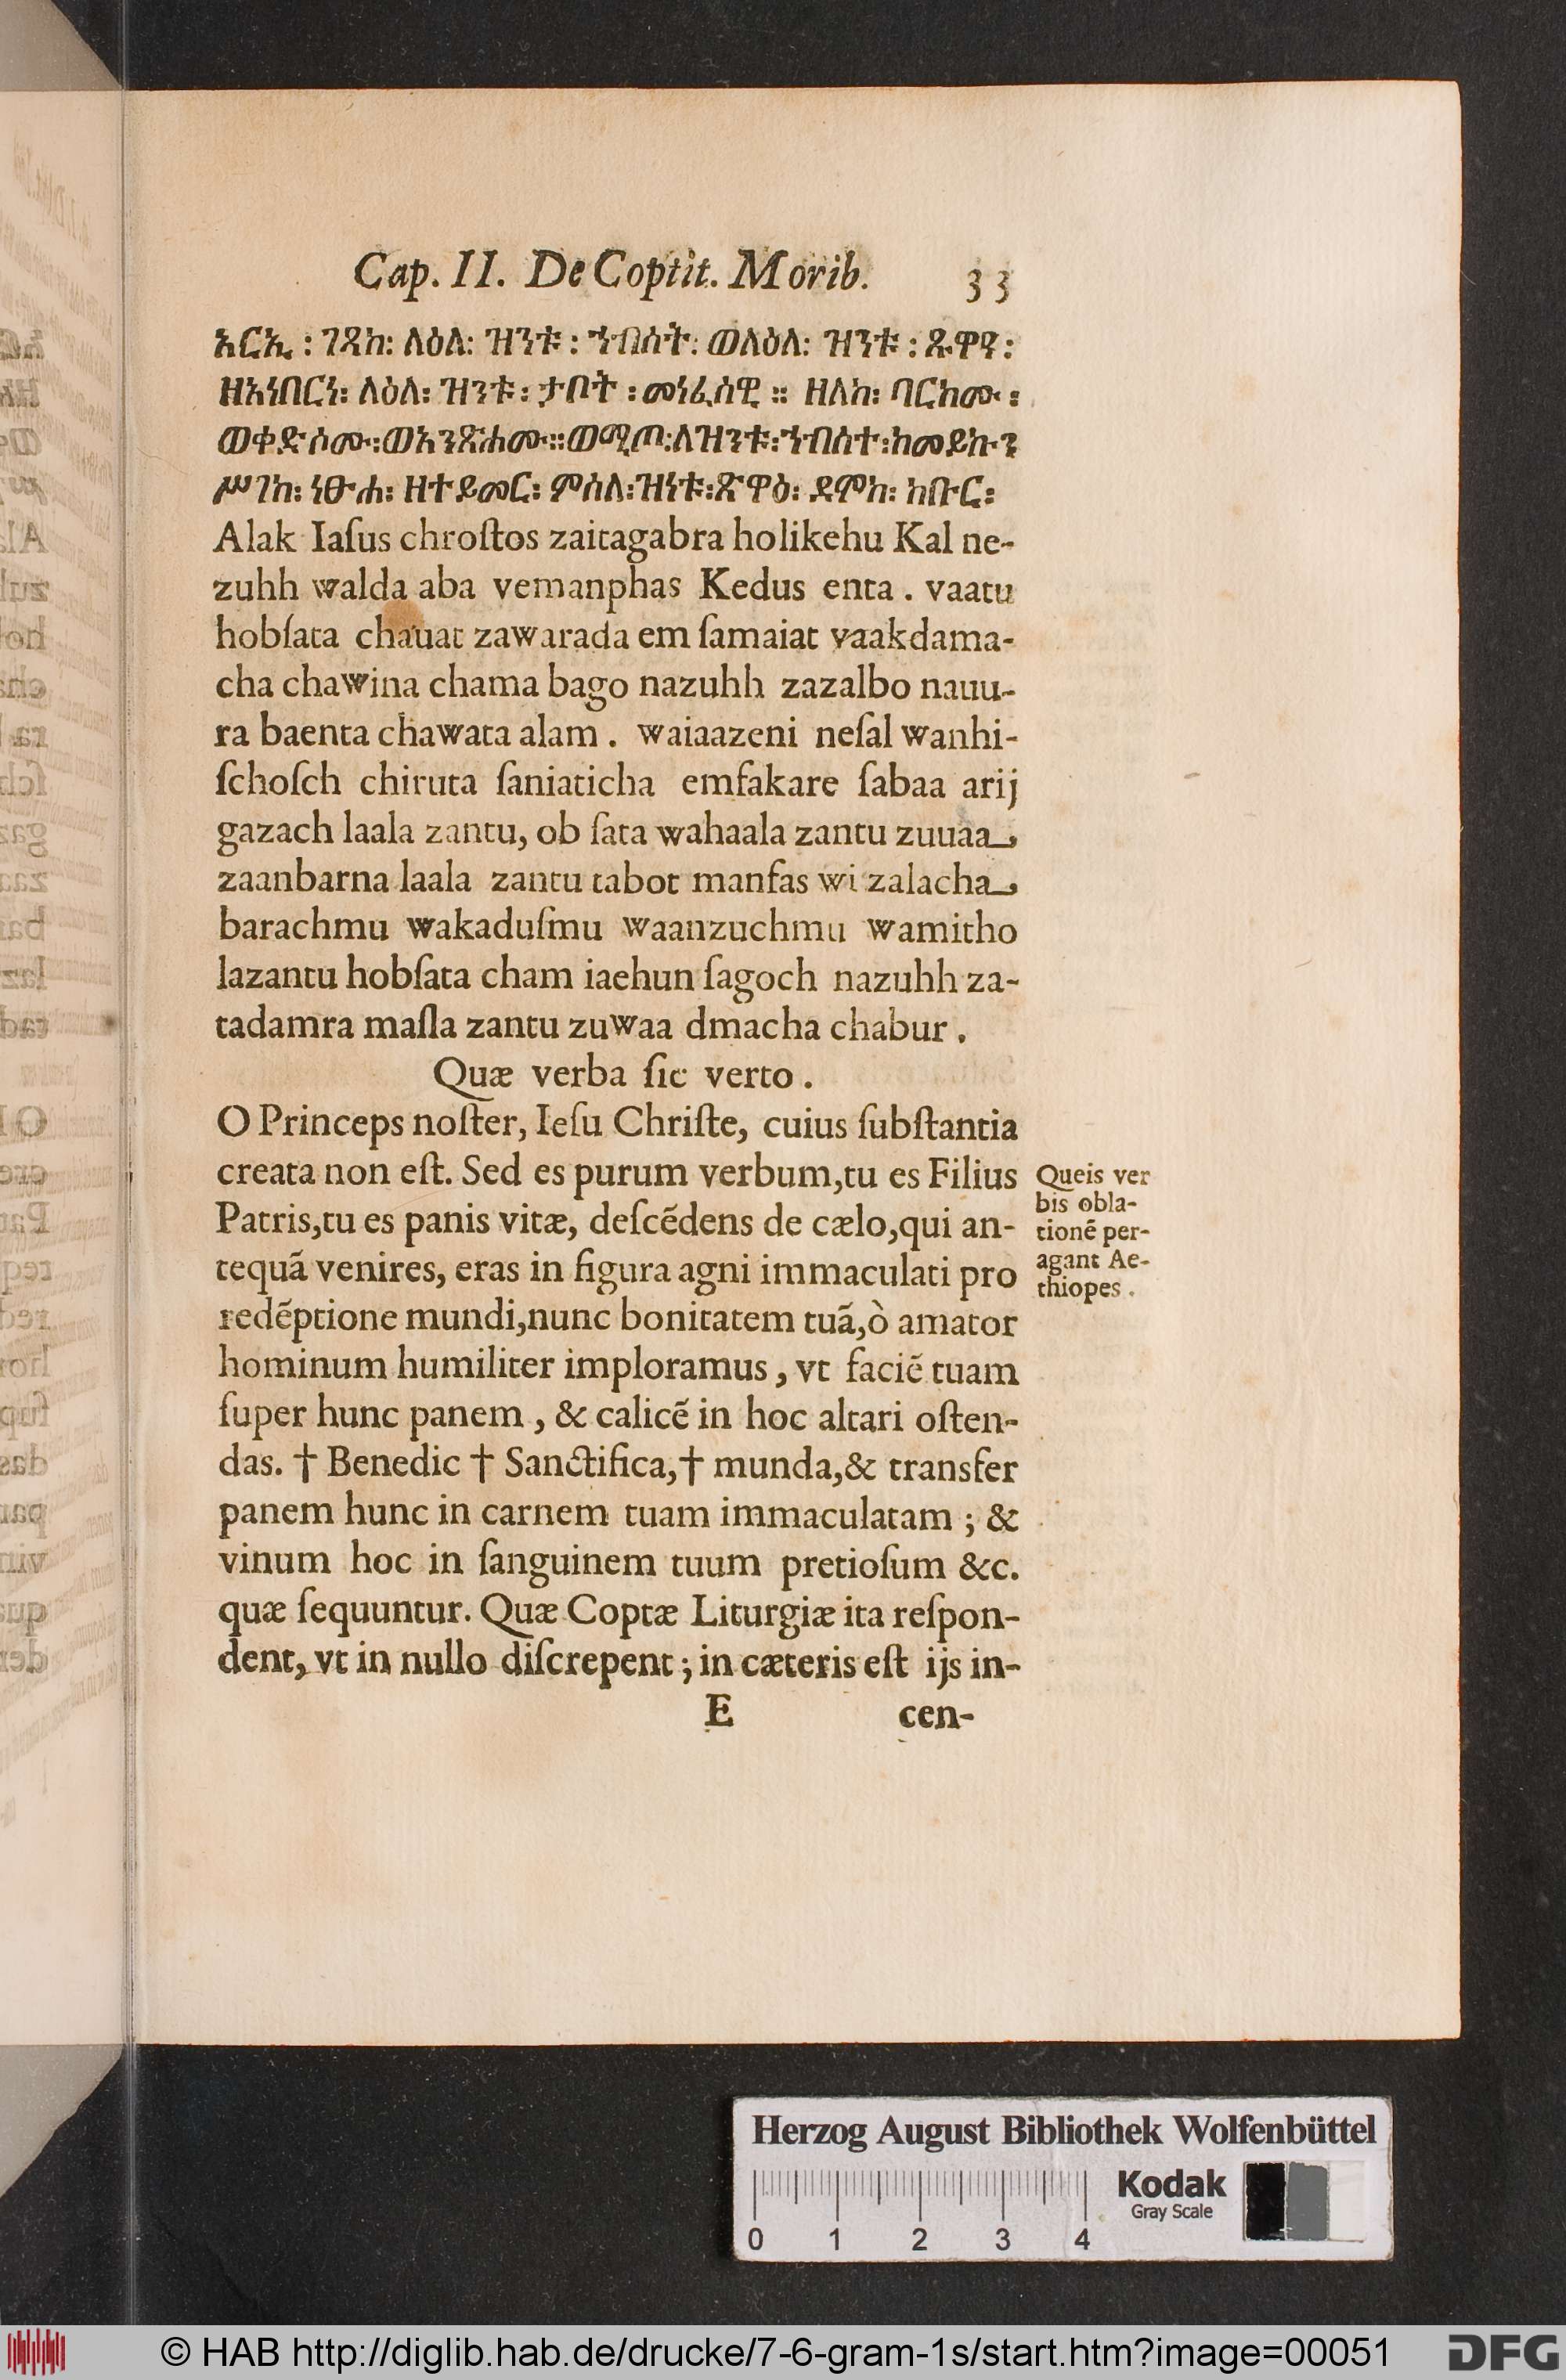 Cap. II. De Coptit. Morib. 33
አርኢ : ገጻከ: ለዕለ: ዝንቱ : ኅብስት: ወለዕለ: ዝንቱ : ጹዋዊ:
ዘአነበርነ: ለዕለ: ዝንቱ: ታቦት : መነፈሰዊ ። ዘለከ: ባርከሙ :
ወቀድሶሙ:ወአንጽሐሙ።ወሚጦ:ለዝንቱ:ኅብስተ:ከመይኩን
ሥገከ: ነፁሐ: ዘተይመር: ምስለ:ዝነቱ:ጽዋዕ: ደምከ: ከቡር:
Alak Iaſus chroſtos zaitagabra holikehu Kal ne-
zuhh walda aba vemanphas Kedus enta . vaatu
hobſata chauat zawarada em ſamaiat vaakdama-
cha chawina chama bago nazuhh zazalbo nauu-
ra baenta chawata alam . waiaazeni neſal wanhi-
ſchoſch chiruta ſaniaticha emfakare ſabaa arij
gazach laala zantu, ob ſata wahaala zantu zuuaa,
zaanbarna laala zantu tabot manfas wi zalacha,
barachmu wakaduſmu waanzuchmu wamitho
lazantu hobſata cham iaehun ſagoch nazuhh za-
tadamra maſla zantu zuwaa dmacha chabur .
Quæ verba ſic verto .
O Princeps noſter, Ieſu Chriſte, cuius ſubſtantia
creata non eſt. Sed es purum verbum,tu es Filius
Patris,tu es panis vitæ, deſcẽdens de cælo,qui an-
tequã venires, eras in figura agni immaculati pro
redẽptione mundi,nunc bonitatem tuã,ò amator
hominum humiliter imploramus , vt faciẽ tuam
ſuper hunc panem , & calicẽ in hoc altari oſten-
das. † Benedic † Sanctifica,† munda,& transfer
panem hunc in carnem tuam immaculatam ; &
vinum hoc in ſanguinem tuum pretioſum &c.
quæ ſequuntur. Quæ Coptæ Liturgiæ ita reſpon-
dent, vt in nullo diſcrepent ; in cæteris eſt ijs in-
E cen-
Queis ver
bis obla-
tionẽ per-
agant Ae-
thiopes .
Herzog August Bibliothek Wolfenbüttel
Kodak
Gray Scale
0 1 2 3 4
© HAB http://diglib.hab.de/drucke/7-6-gram-1s/start.htm?image=00051
DFG